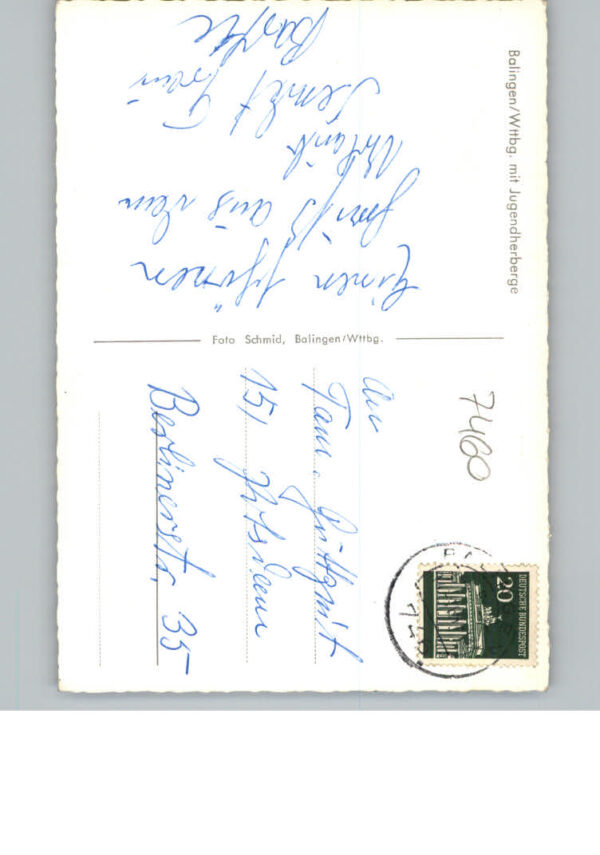 Balingen/Wttbg. mit Jugendherberge
Einen schönen
Gruß aus dem
Urlaub
sendet
Foto Schmid, Balingen/Wttbg.
7460
An
Fam.
151 Potsdam
Berlinerstr. 35
20
DEUTSCHE BUNDESPOST